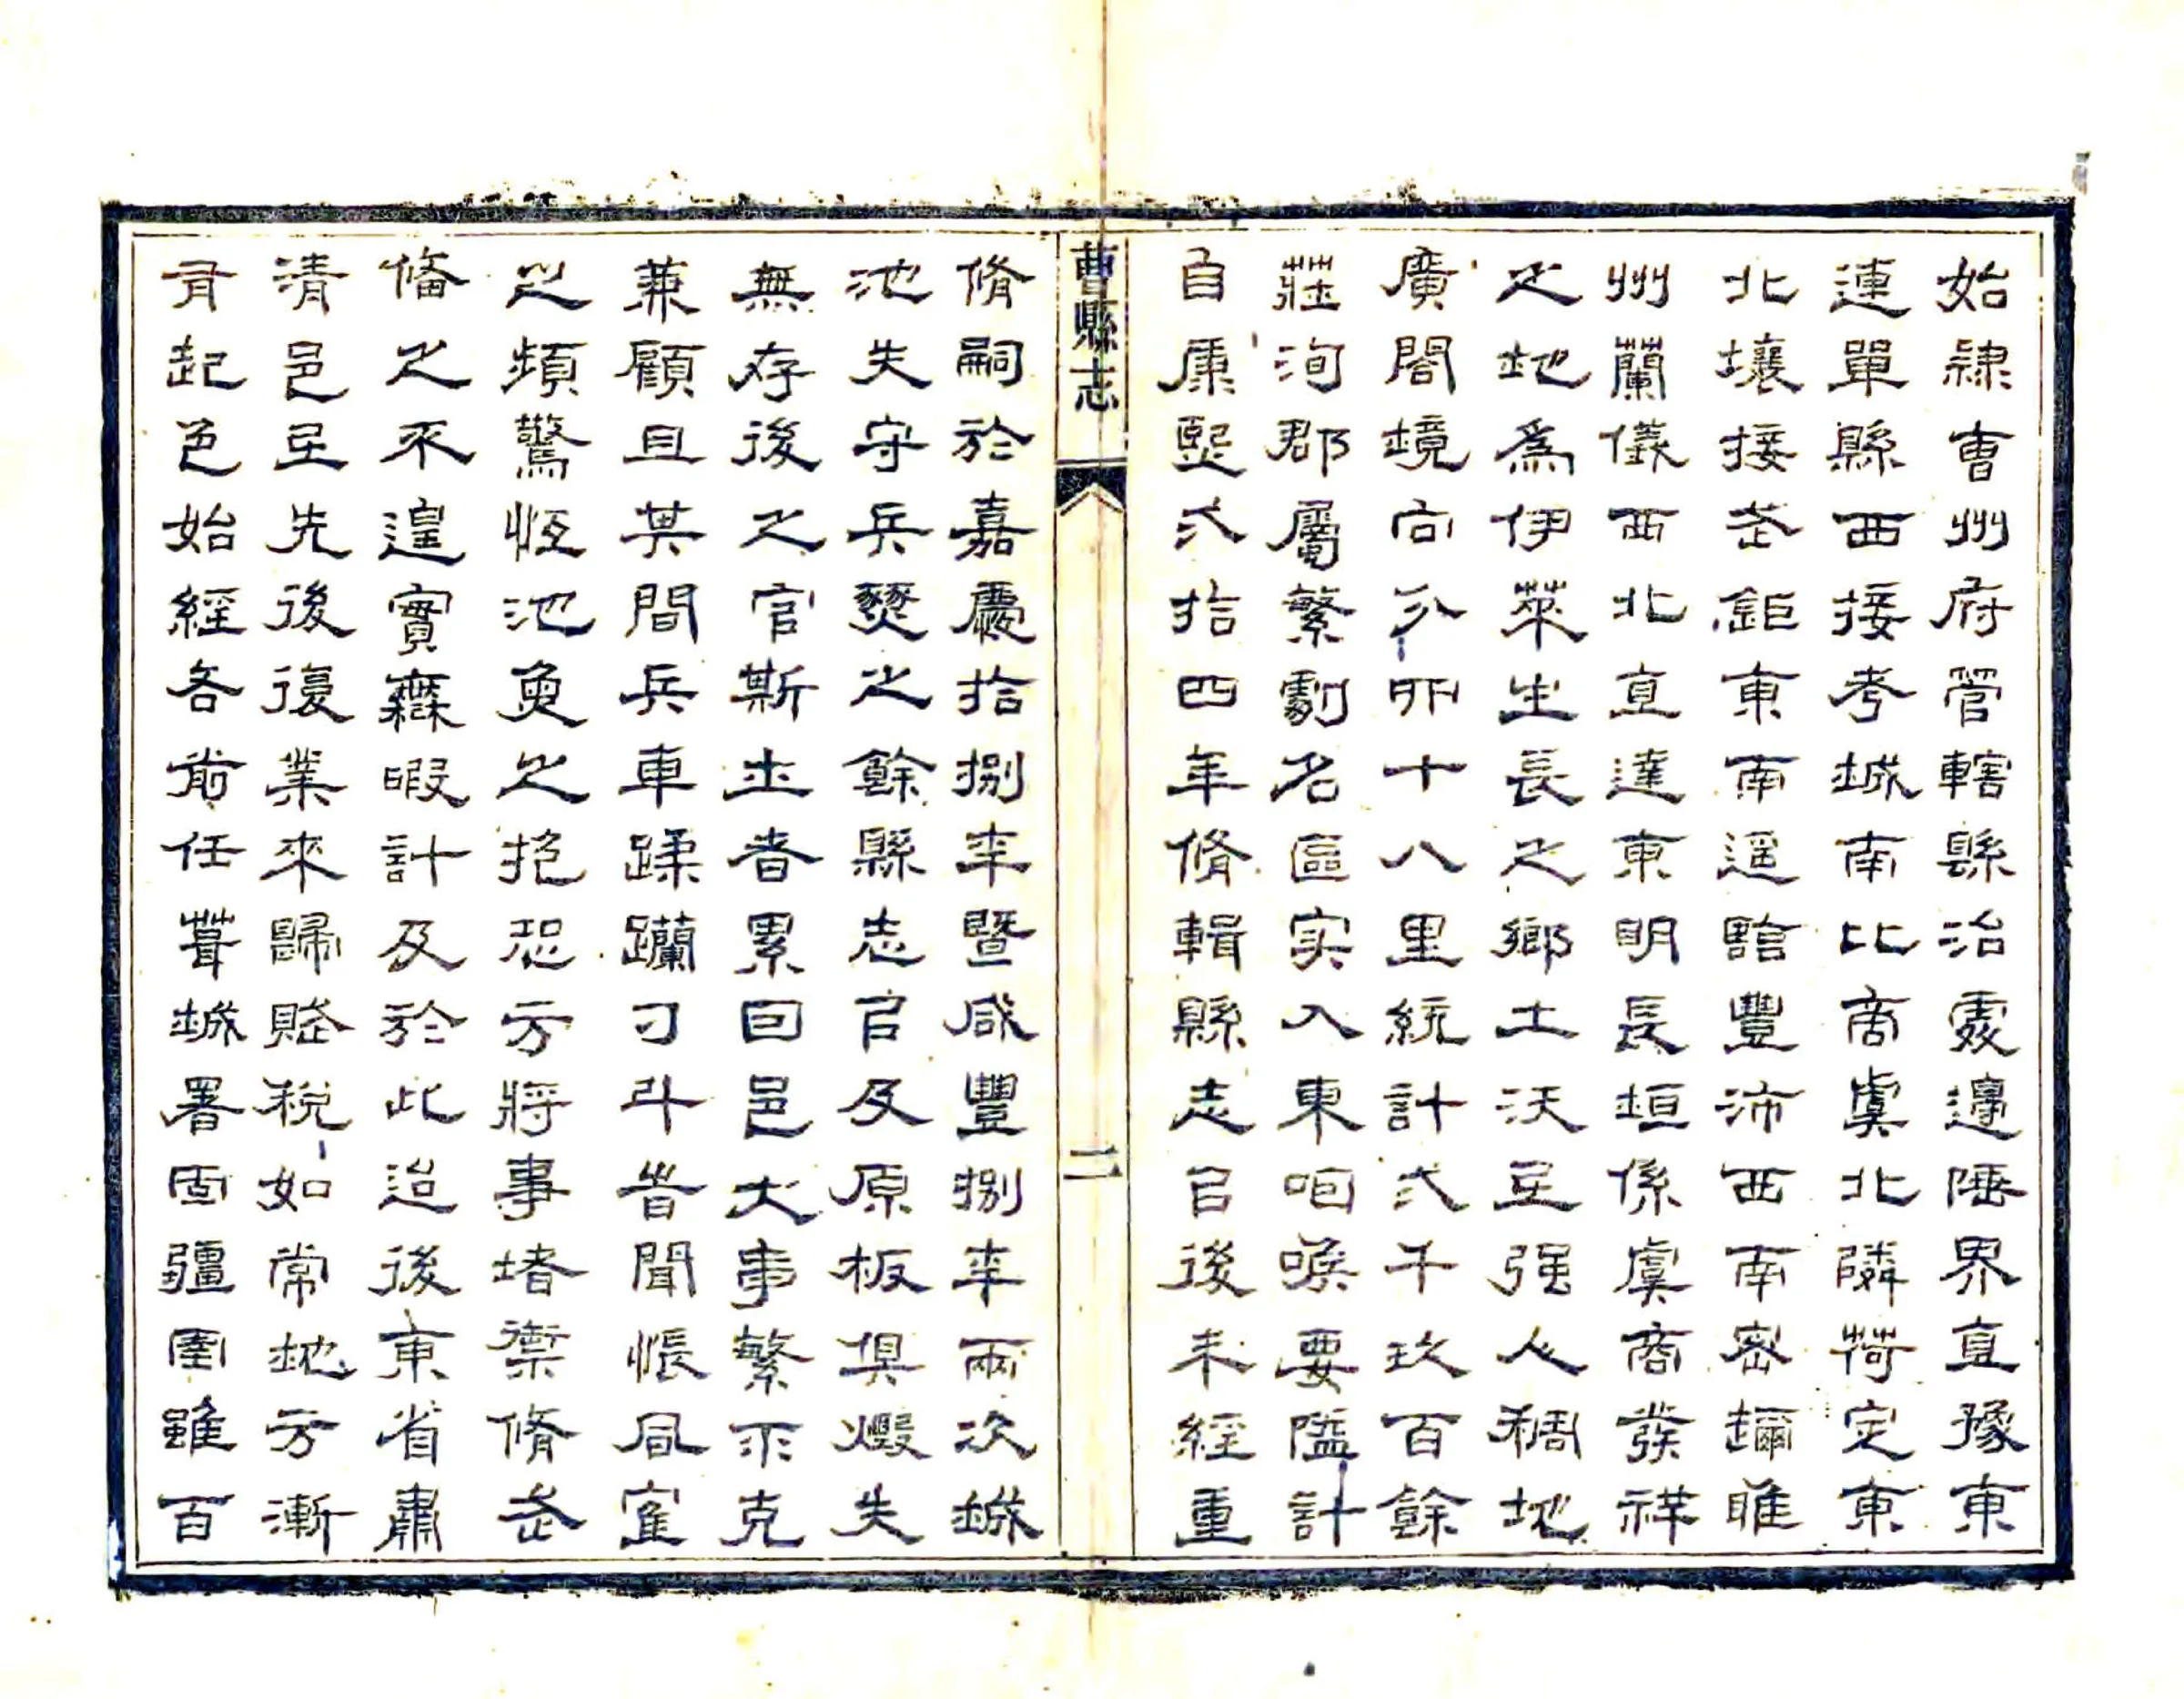 始隸曹州府管轄縣治處邊陲界直豫東
連單縣西接考城南比商虞北隣荷定東
北壤接武鉅東南遥踰豐沛西南密邇睢
州蘭儀西北直達東明長垣係虞商發祥
之地為伊萊生長之鄉土沃民强人稠地
廣閤境向分卯十八里統計弍千玖百餘
莊洵郡屬繁劇名區实入東咽喉要隘計
自康熙弍拾四年脩輯縣志㠯後未經重
曹縣志
二
脩嗣於嘉慶拾捌年暨咸豐捌年兩次城
池失守兵燹之餘縣志㠯及原板俱燬失
無存後之官斯土者累因邑大事繁不克
兼顧且其間兵車蹂躪刁斗昔聞悵風寉
之頻驚恆池奐之抱恐方將事堵禦脩武
備之不遑實無暇計及於此迨後東省肅
清邑民先後復業來歸賦税如常地方漸
有起色始經各前任葺城署固疆圉雖百